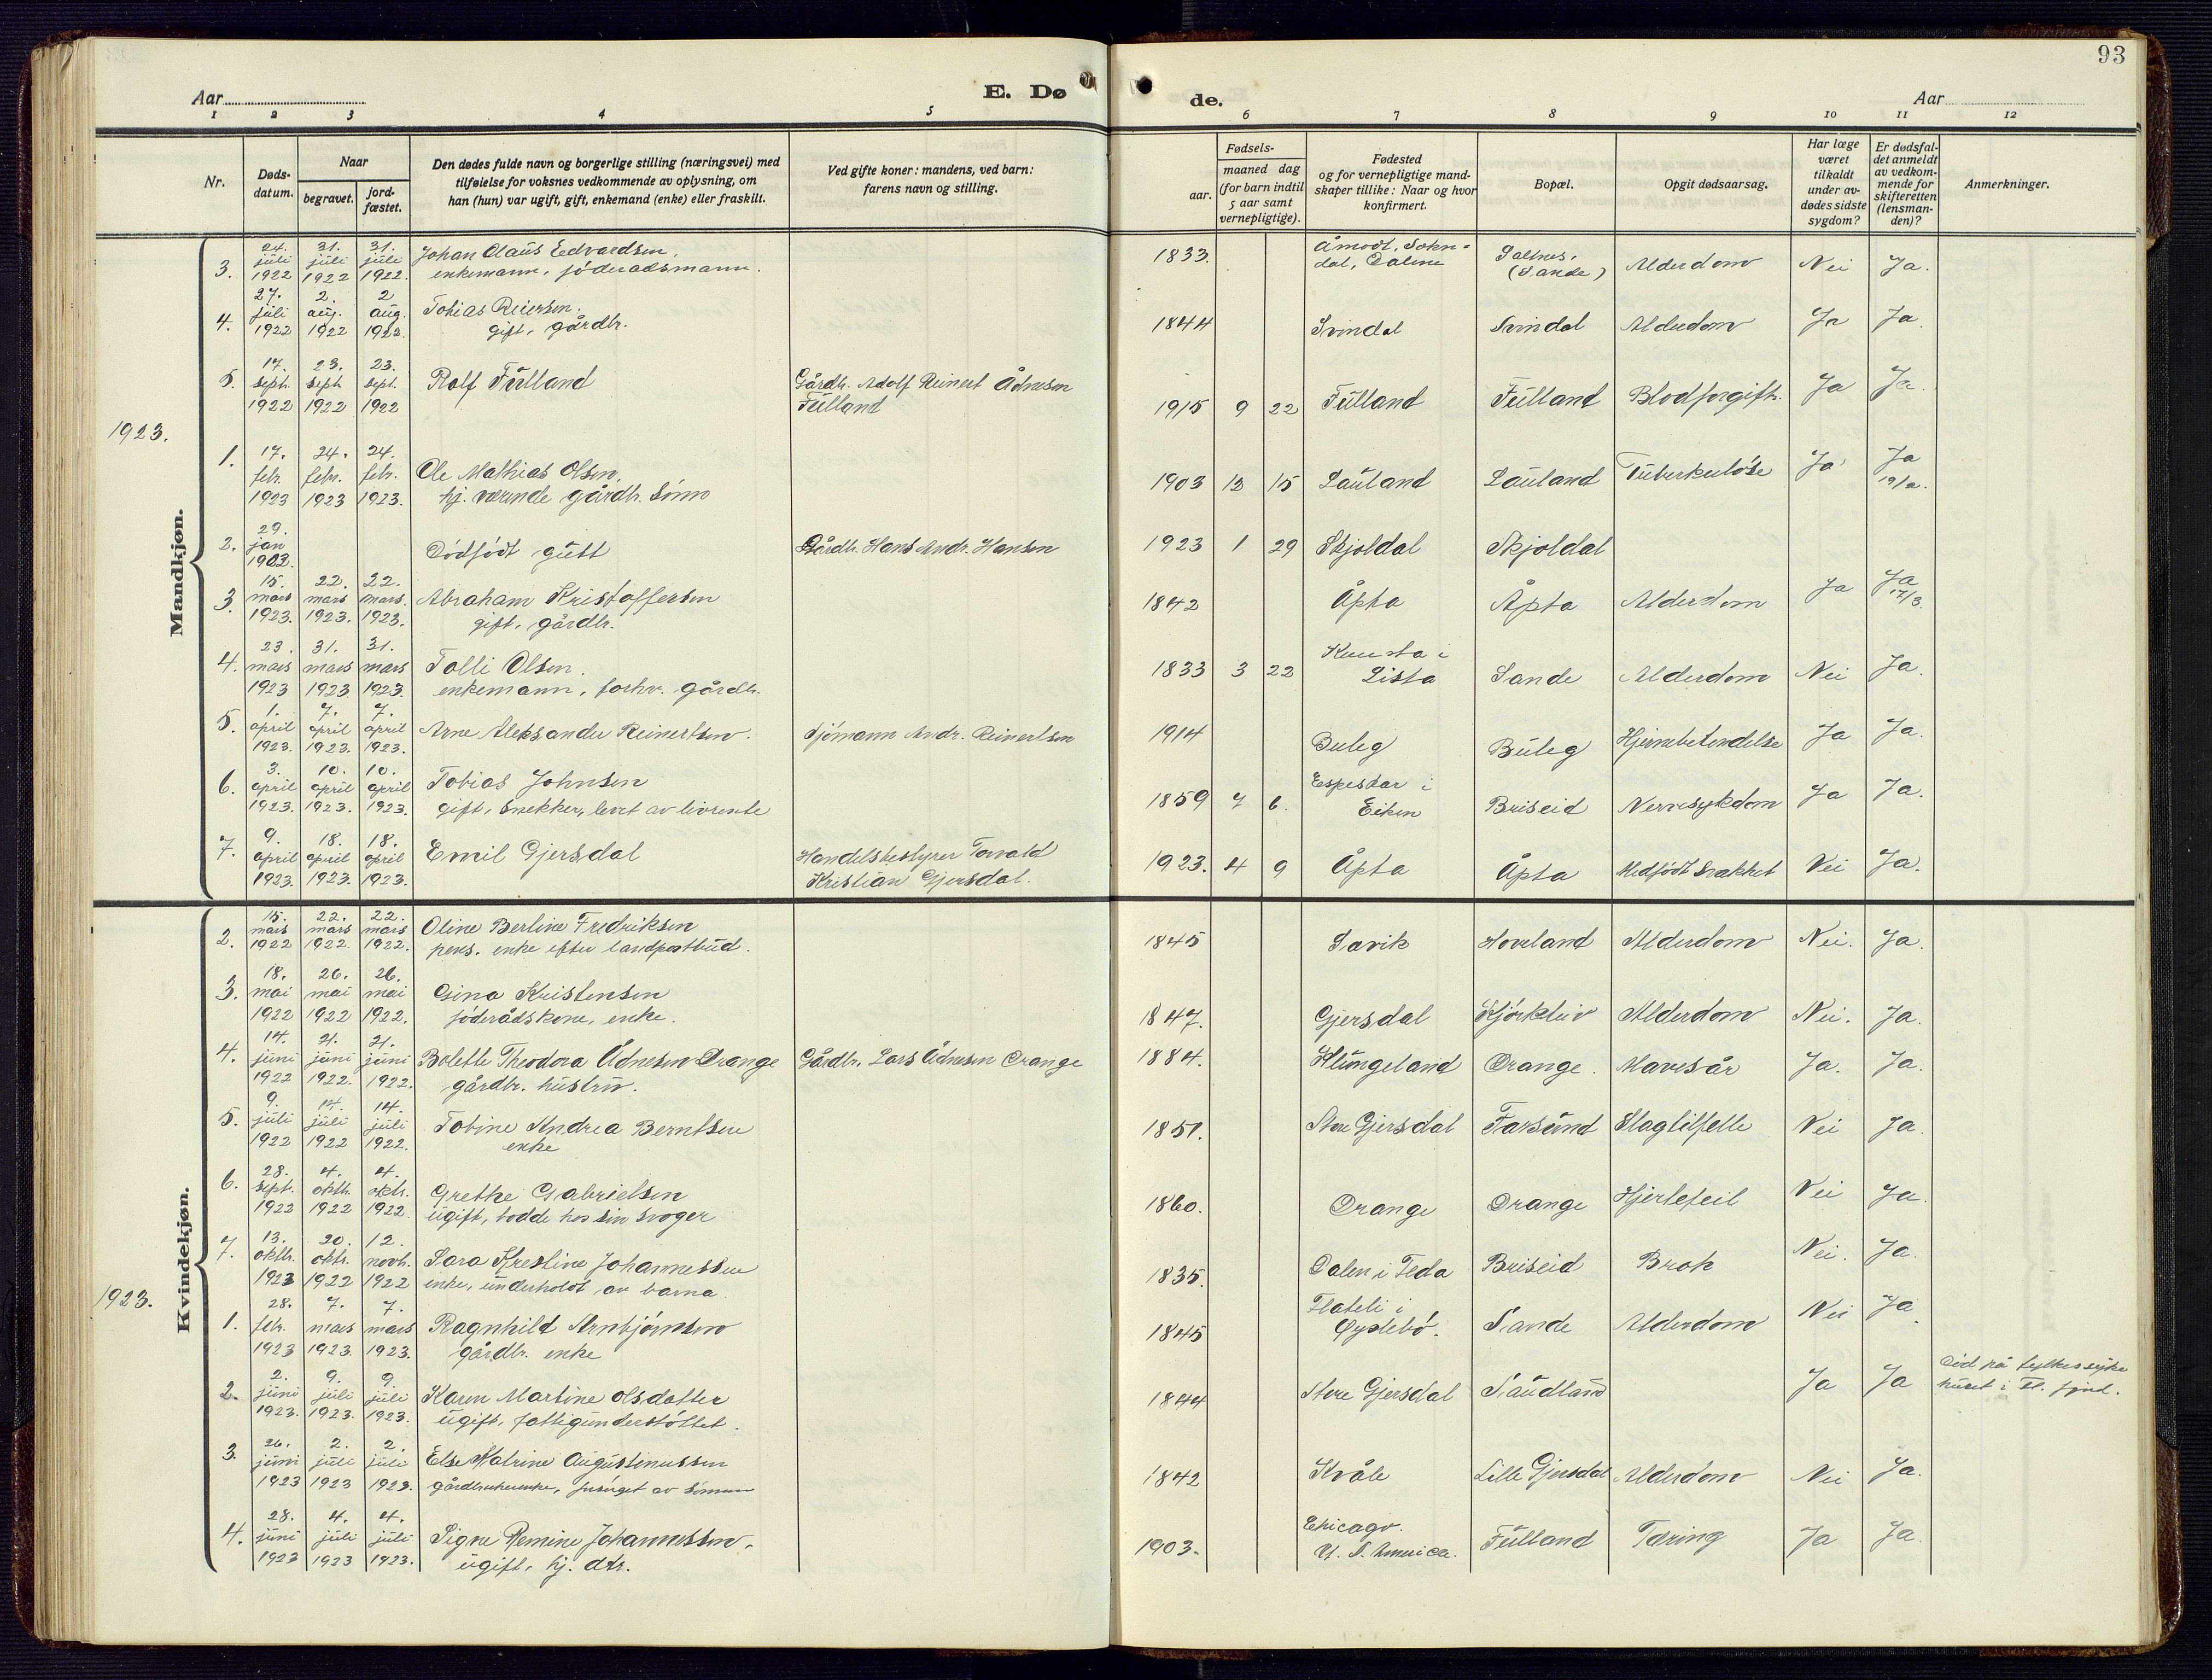 93
E. Dø de.
Aar
Aar
1 2 3 4 5 6 7 8 9 10 11 12
Nr.
Døds-
datum.
Naar
begravet.
jord-
fæstet.
Den dødes fulde navn og borgerlige stilling (næringsvei) med
tilføielse for voksnes vedkommende av oplysning, om
han (hun) var ugift, gift, enkemand (enke) eller fraskilt.
Ved gifte koner: mandens, ved barn:
farens navn og stilling.
Fødsels-
aar.
maaned dag
(for barn indtil
5 aar samt
vernepligtige).
Fødested
og for vernepligtige mand-
skaper tillike: Naar og hvor
konfirmert.
Bopæl.
Opgit dødsaarsag.
Har læge
været
tilkaldt
under av-
dødes sidste
sygdom?
Er dødsfal-
det anmeldt
av vedkom-
mende for
skifteretten
(lensman-
den)?
Anmerkninger.
Mandkjøn.
3. 24. juli 1922 31. juli 1922 31. juli 1922. Johan Olaus Eedvardsen,
enkemann, föderadsmann. 1833. Åmodt, Sokn-
dal, Dalene Saltnes, (Sande) Alderdom Nei Ja.
4. 27. juli 1922 2. aug. 1922 2 aug. 1922. Tobias Reiersen.
gift, gårdbr. 1844 Svindal Svindal Alderdom Ja Ja.
5. 17. sept. 1922 23. sept 1922 23. sept. 1922 Rolf Fülland Gårdbr. Adolf Reinert Ådnesen
Fülland 1915 9 22 Fülland Fülland Blodforgift. Ja Ja.
1923.
1. 17. febr. 1923 24. febr. 1923 24. febr. 1923. Ole Mathias Olsen,
hj. værende gårdbr. sönn 1903 12 15 Lauland Lauland Tüberkulöse Ja Ja 19/2.
2. 29. jan 1903. Dödfödt gütt Gårdbr. Hans Andr. Hansen 1923 1 29 Skjoldal Skjoldal
3. 15. mars 1923. 22. mars 1923. 22. mars. 1923. Abraham Kristoffersen
gift, gårdbr. 1842 Åpta Åpta Alderdom Ja Ja 17/3.
4. 23. mars 1923 31. mars 1923 31. mars 1923. Tolli Olsen.
enkemann, forhv. gårdbr. 1833 3 22 i
Lista Sande Alderdom Nei Ja.
5. 1. april 1923. 7. april 1923. 7. april 1923. Arne Aleksander Reinertsen. Sjömann Andr. Reinertsen 1914 Buleg Büleg Hjernebetendelse Ja Ja.
6. 3. april 1923. 10. april 1923. 10. april 1923. Tobias Johnsen
gift, Snekker, levet av livrente 1859 7 6. Espesdar i
Eiken Briseid Nervesykdom Ja Ja.
7. 9. april 1923. 18. april 1923. 18. april 1923. Emil Gjersdal Handelsbestyrer Torvald
Kristian Gjersdal. 1923. 4 9 Åpta Åpta Medfödt svakhet Nei Ja.
Kvindekjøn.
2. 15. mars 1922 22. mars 1922. 22. mars 1922. Oline Berline Fredriksen
pens. enke efter landpostbud. 1845 Savik Hoveland Alderdom Nei. Ja.
3. 18. mai 1922 26. mai 1922 26. mai 1922. Gina Kristensen
föderådskone, enke. 1847. Gjersdal Alderdom Nei. Ja.
4. 14. juni 1922 21. juni 1922. 21. juni 1922. Bolette Theodora Ådnesen Drange
gårdbr. hüstrü. Gårdbr. Lars Ådnesen Drange 1884. Klüngeland Drange. Mavesår Ja. Ja.
5. 9. juli 1922 14. juli 1922 14. juli 1922. Tobine Andrea Berntsen
enke 1851. Store Gjersdal Farsünd Slagtilfelle Nei Ja.
6. 28. sept. 1922 4. oktb. 1922 4. oktr. 1922. Grethe Gabrielsen
ügift, bodde hos sin svoger 1860. Drange Drange Hjertefeil Nei Ja.
7. 13. oktb. 1923 20. oktr. 1922 12. novb. 1922 Sara Kresline Johannessen
enke, ünderholdt av barna. 1835. Dalen i Feda Briseid Brok Nei. Ja.
1923.
1. 28. febr. 1923 7. mars 1923. 7. mars 1923. Ragnhild Arnbjörnsen
gårdbr. enke 1845 Flateli i
Öyslebö. Sande Alderdom Nei Ja.
2. 2. juni 1923. 9. juli 1923. 9. juli 1923. Karen Martine Olsdatter
ügift, fattigünderstöttet. 1844 Store Gjersdal Saudland Ja Ja Död på fylkessyke
huset i Fl. fjord.
3. 26. juni 1923 2. juli 1923 2. juli 1923. Else Katrine Augüstinussen
gårdbrukerenke, forsörget av sönnen 1842 Kvåle Lille Gjersdal Alderdom Nei Ja.
4. 28. juni 1923 4. juli 1923 4. juli 1923. Signe Remine Johannessen,
ügift, hj. dtr. 1903. Chicago.
U. S. America. Fülland Tæring Ja Ja.